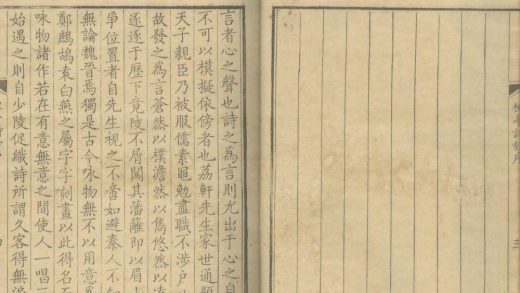 詩鈔序
三
言者心之聲也詩之爲言則尤出于心之自
不可以模擬依傍者也荔軒先生家世通
天子親臣乃被服儒素黽勉盡職不涉戶
故發之爲言蒼然以樸澹然以雋悠然以
逐逐于歷下竟陵不屑闚其藩籬即以眉
爭位置者自先生視之不啻如避秦人不知
無論魏晉焉獨是古今咏物無不以用意
鄭鷓鴣袁白燕之屬字字刻畫以此得名
咏物諸作若在有意無意之間使人一唱三
始遇之則自少陵促織詩所謂久客得無